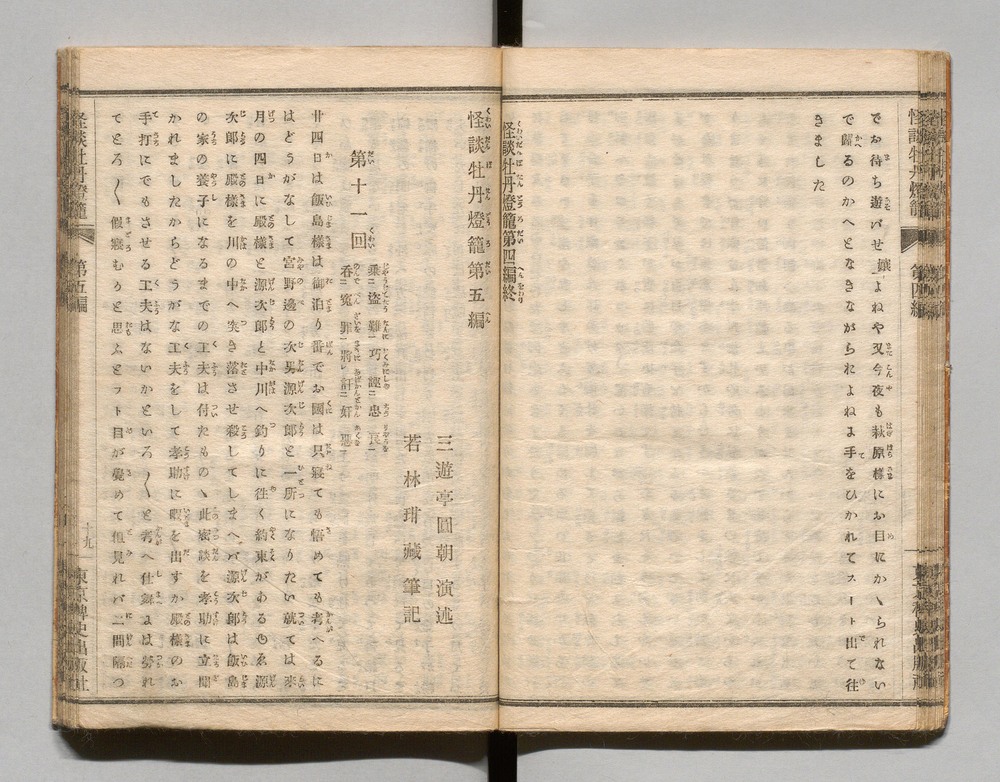 怪談牡丹燈籠 第四編
でお待ち遊バせ 嬢 よねや又今夜も萩原樣にお目にかゝられない
で帰るのかへとなきながられよねよ手をひかれてスート出て往
きました
怪談牡丹燈籠第四編終
怪談牡丹燈籠第五編
三遊亭圓朝 演述
若林玵藏 筆記
第十一回
乘盜難巧謔忠良
呑寃罪將訐奸惡
廿四日は飯島樣は御泊り番でお國は只寢ても悟めても考へるに
はどうがなして宮野邊の次男源次郎と一所になりたい就ては來
月の四日に殿樣と源次郎と中川へ釣りに往く約束があるゆゑ源
次郎に殿樣を川の中へ突き落させ殺してしまへバ源次郎は飯島
の家の養子になるまでの工夫は付たものゝ此密談を孝助に立聞
かれましたからどうがな工夫をして孝助に暇を出すか殿樣のお
手打にでもさせる工夫はないかといろ〳〵と考へ仕舞よは労れ
てとろ〳〵假寢むりと思ふとフト目が覺めて見れバ二間隔つ
怪談牡丹燈籠 第五編
十九
東京稗史出版社